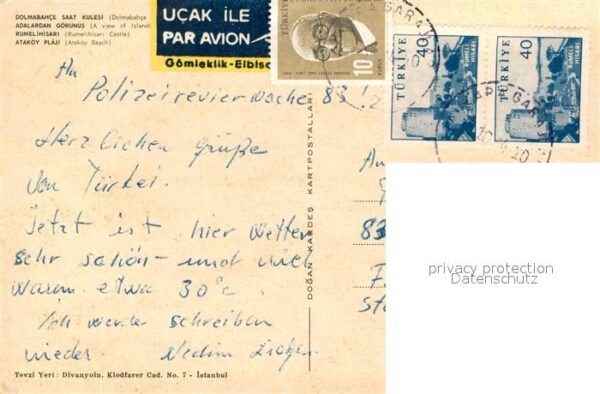 DOLMABAHÇE SAAT KULESİ (Dolmabahçe
ADALARDAN GÖRÜNÜŞ (A view of Island
RUMELİHİSARI (Rumelihisarı Castle)
ATAKÖY PLÂJI (Ataköy Beach)
UÇAK İLE
PAR AVION
Gömleklik-Elbise
10
KURUŞ
TÜRKİYE
40
RUMELİ
HİSARI
TÜRKİYE
40
RUMELİ
HİSARI
An
Polizeirevierwache 83
Herzlichen Grüße
von Türkei.
Jetzt ist hier Wetter
sehr schön - und viel
warm etwa 30°C.
Ich werde schreiben
wieder. Nedim
An
83
DOĞAN KARDEŞ KARTPOSTALLARI
Tevzi Yeri : Divanyolu, Klodfarer Cad. No. 7 - İstanbul
privacy protection
Datenschutz